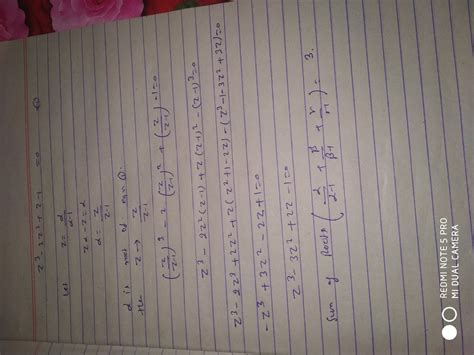 z³ - 2z² + z - 1 = 0 ①
Let
z = α/(α-1)
zα - z = α
α = z/(z-1)
α is root of eqn ①
then z → z/(z-1)
(z/(z-1))³ - 2 (z/(z-1))² + (z/(z-1)) - 1 = 0
z³ - 2z²(z-1) + z(z-1)² - (z-1)³ = 0
z³ - 2z³ + 2z² + z(z²+1-2z) - (z³-1-3z²+3z) = 0
-z³ + 3z² - 2z + 1 = 0
z³ - 3z² + 2z - 1 = 0
Sum of Roots (α/(α-1) + β/(β-1) + γ/(γ-1)) = 3.
REDMI NOTE 5 PRO
MI DUAL CAMERA